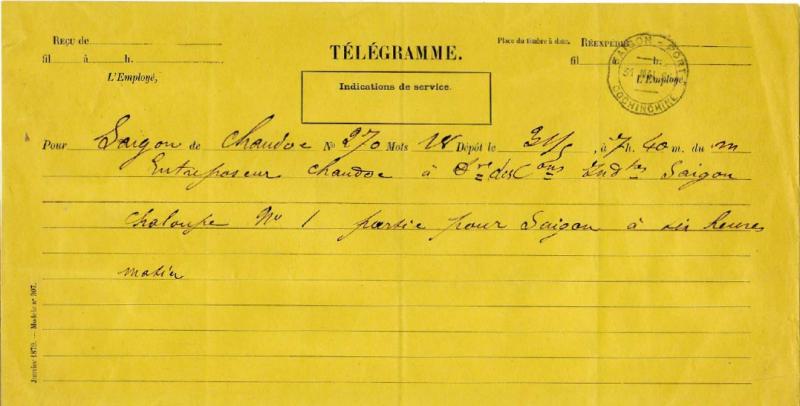 Reçu de Place du timbre à date. Réexpédié
fil à h. TÉLÉGRAMME. fil h.
L'Employé, L'Employé,
Indications de service.
SAIGON - PORT
31 MAI
COCHINCHINE
Pour Saigon de Chaudoc No 270 Mots 18 Dépôt le 31/5 à 7h. 40 m. du m
Entreposeur Chaudoc à Dre des Cons Indtes Saigon
chaloupe No 1 partie pour Saigon à six heures
matin
Janvier 1879. — Modèle no 307.